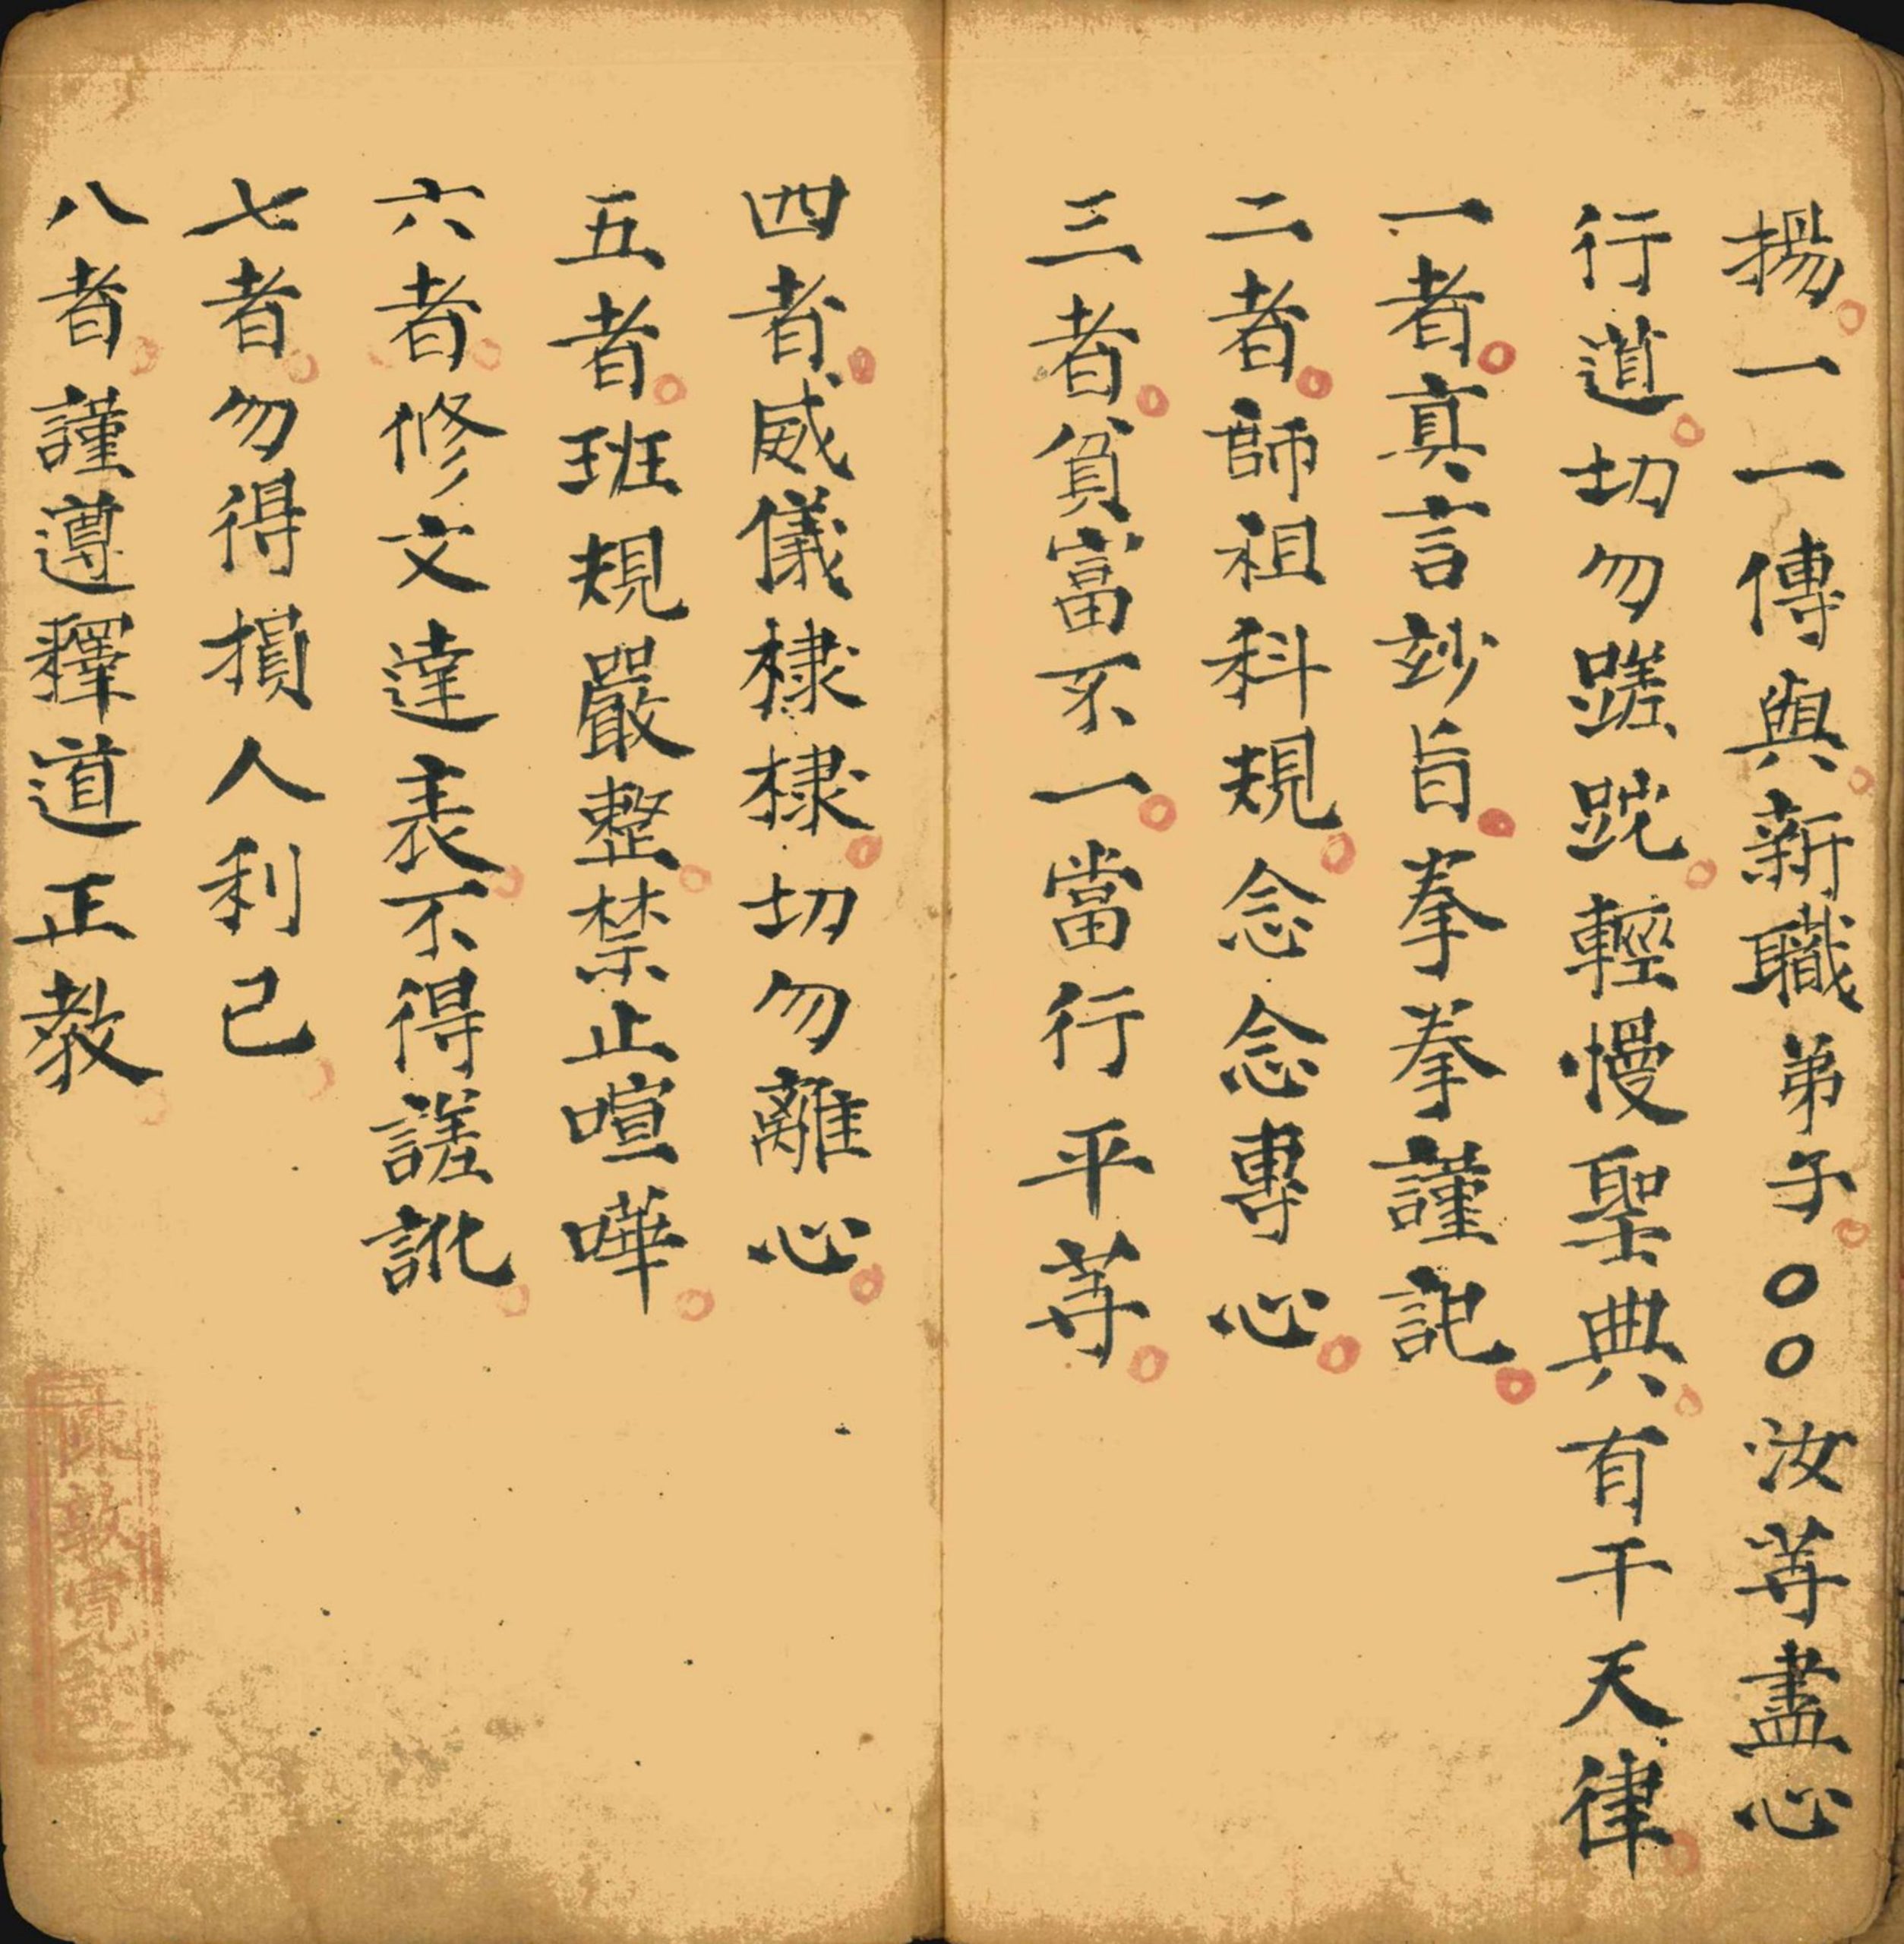 揚一一傳與新職弟子〇〇汝等盡心
行道切勿蹉跎輕慢聖典有干天律
一者真言玅旨拳拳謹記
二者師祖科規念念專心
三者貧富不一當行平等
四者威儀棣棣切勿離心
五者班規嚴整禁止喧嘩
六者修文達表不得謯訛
七者勿得損人利己
八者謹遵釋道正教